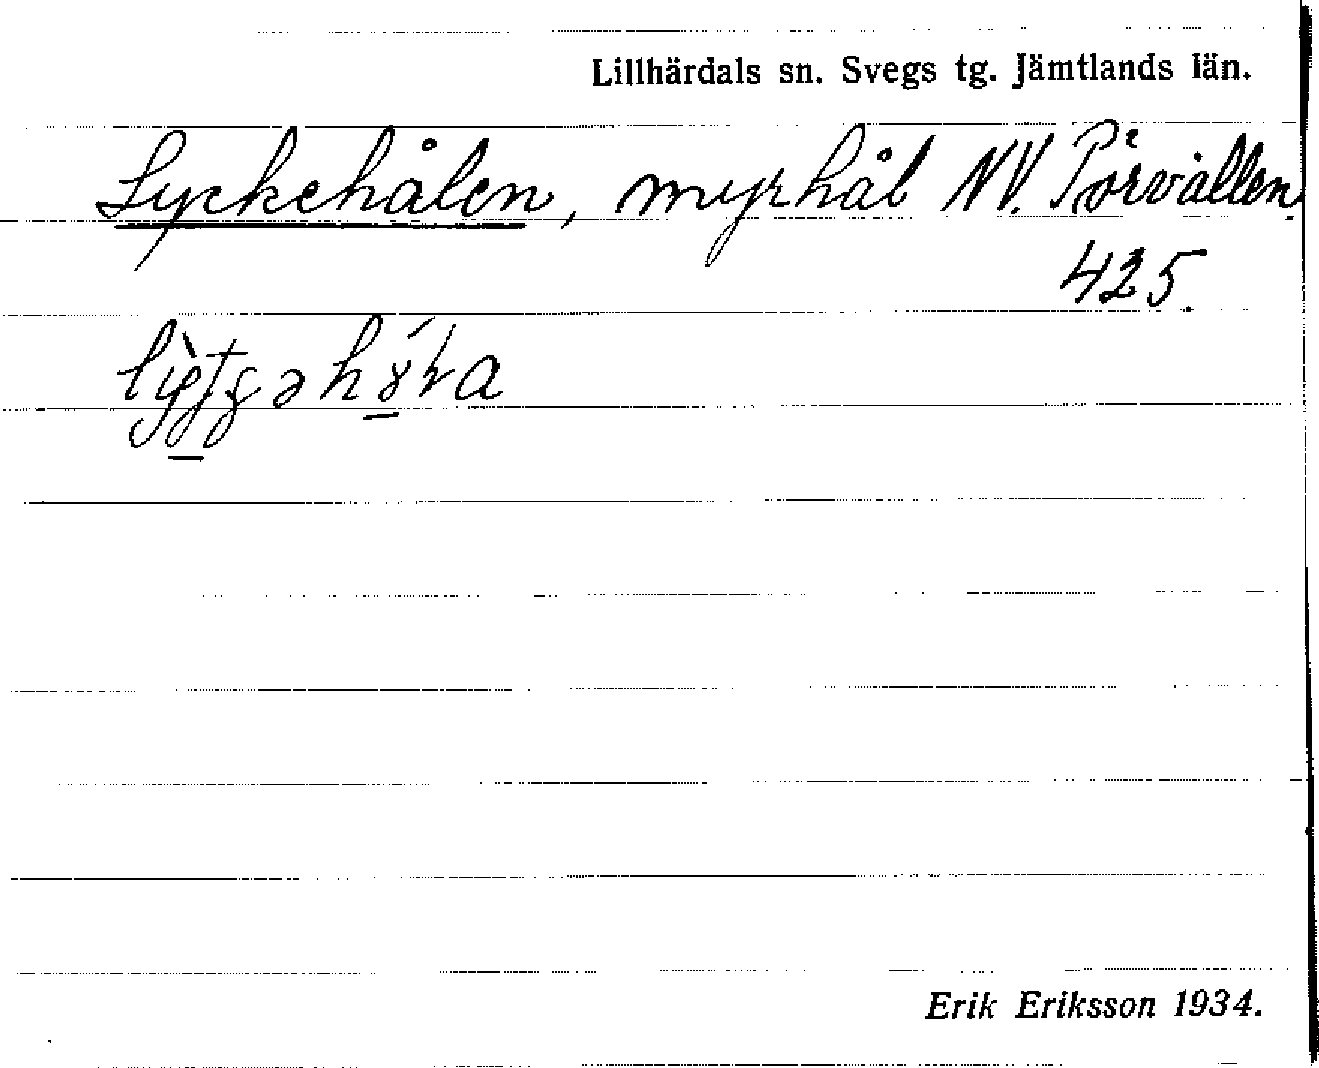 Lillhärdals sn. Svegs tg. Jämtlands län.
Lyckehålen, myrhål NV. Pårvallen.
425.
Erik Eriksson 1934.